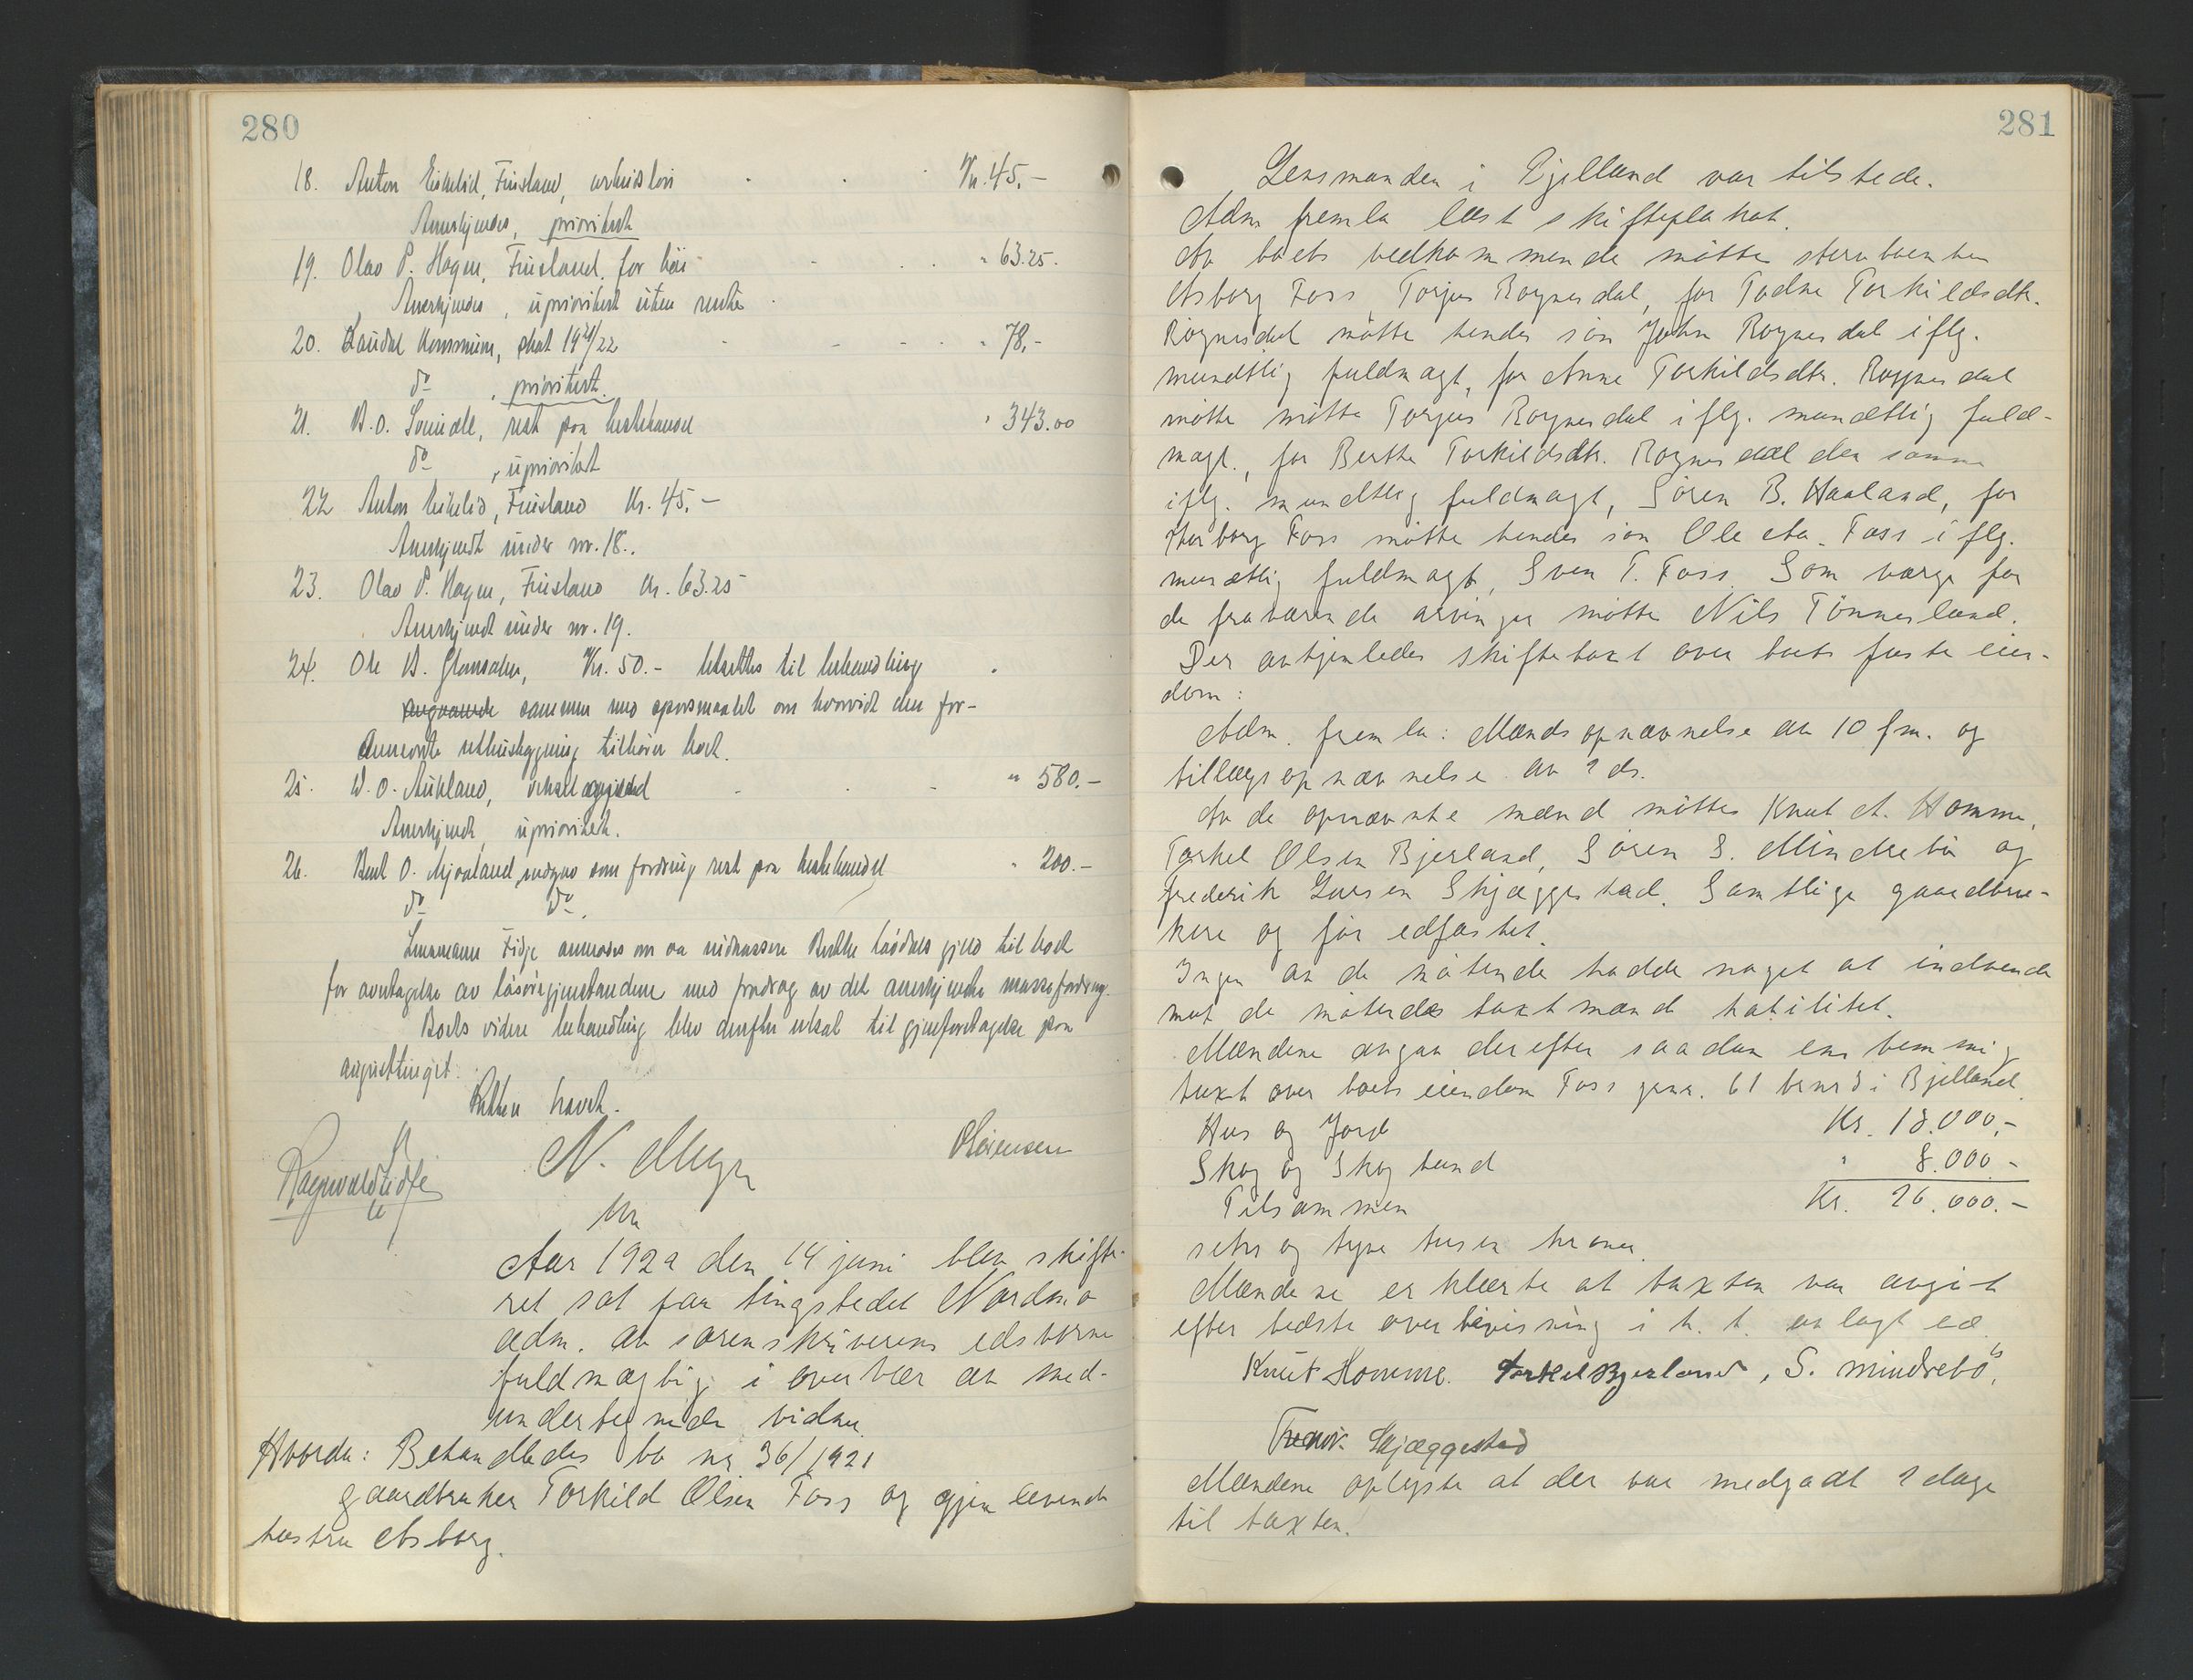 280
18. Anton Eikelid, Finsland, arbeidslön Kr. 45.-
Anerkjendes, prioritert
19. Olav P. Hagen, Finsland, for höi " 63.25.
Anerkjendes, uprioritert uten renter
20. Laudal Kommune, skat 1921/22 " 78.-
do , prioritert.
21. B.O. rest paa hestehandel " 343.00
do , uprioritert
22 Anton Eikelid, Finsland Kr. 45.-
Anerkjendt under nr. 18.
23. Olav P. Hagen, Finsland Kr. 63.25
Anerkjendt under nr. 19.
24. Ole Kr. 50.- utsættes til behandling
angaaende sammen med spørsmaalet om hvorvidt den for-
uthusbygning tilhører boet.
25. O. Aukland, " 580.-
Anerkjendt, uprioritert.
26. O. Mjaaland, som fordring rest paa hestehandel " 200.-
do do.
Lensmann Fidje anmodes om aa indkassere gjeld til boet
for avtagelse av løsøregjenstandene med fradrag av det anerkjendte massefordring.
Boets videre behandling blev derefter utsat til gjenforetagelse paa
augusttinget.
Retten hævet.
N. Meyer
Sørensen
Ragnvald Fidje
Aar 1922 den 14 juni blev skifte-
ret sat paa tingstedet Nordmo
adm. av sorenskriverens edsvorne
fuldmægtig i overvær av med-
undertegnede vidner.
Hvorda: Behandledes bo nr 36/1921
gaardbruker Torkild Olsen Foss og gjenlevende
hustru Asborg.
281
Lensmanden i Bjelland var tilstede.
Adm. fremla læst skifteplakat.
Av boets vedkommende møtte stervboenken
Asborg Foss Torjus Røynesdal, for Todne Torkildsdtr.
Røynesdal møtte hendes søn John Røynesdal iflg.
mundtlig fuldmagt, for Anne Torkildsdtr. Røynesdal
møtte møtte Torjus Røynesdal iflg. mundtlig fuld-
magt., for Berthe Torkildsdtr. Røynesdal den samme
iflg. mundtlig fuldmagt, Søren B. Haaland, for
Foss møtte hendes søn Ole Foss iflg.
mundtlig fuldmagt, Sven T. Foss. Som værge for
de fraværende arvinger møtte Nils Tønnesland.
Der avhjemledes skiftetaxt over boets faste eien-
dom:
Adm. fremla: Mændsopnævnelse av 10 f.m. og
tillægsopnævnelse av 2 ds.
Av de opnævnte mænd møttes Knut A. Homme,
Torkel Olsen Bjerland, Søren S. Mindrebø og
Frederik Larsen Skjæggestad. Samtlige gaardbru-
kere og før edfæstet.
Ingen av de møtende hadde noget at indvende
mot de møtendes taxtmænds habilitet.
Mændene avgav derefter saadan enstemmig
taxt over boets eiendom Foss gnr. 61 brnr 3 i Bjelland.
Hus og Jord Kr. 18.000,-
Skog og Skogbund " 8.000 -
Tilsammen Kr. 26.000.-
seks og tyve tusen kroner.
Mændene erklærte at taxten var avgit
efter bedste overbevisning i h. t. avlagt ed.
Knut Homme. Torkel Bjerland, S. Mindrebø,
Fredrik Skjæggestad
Mændene oplyste at der var medgaat 2 dage
til taxten.